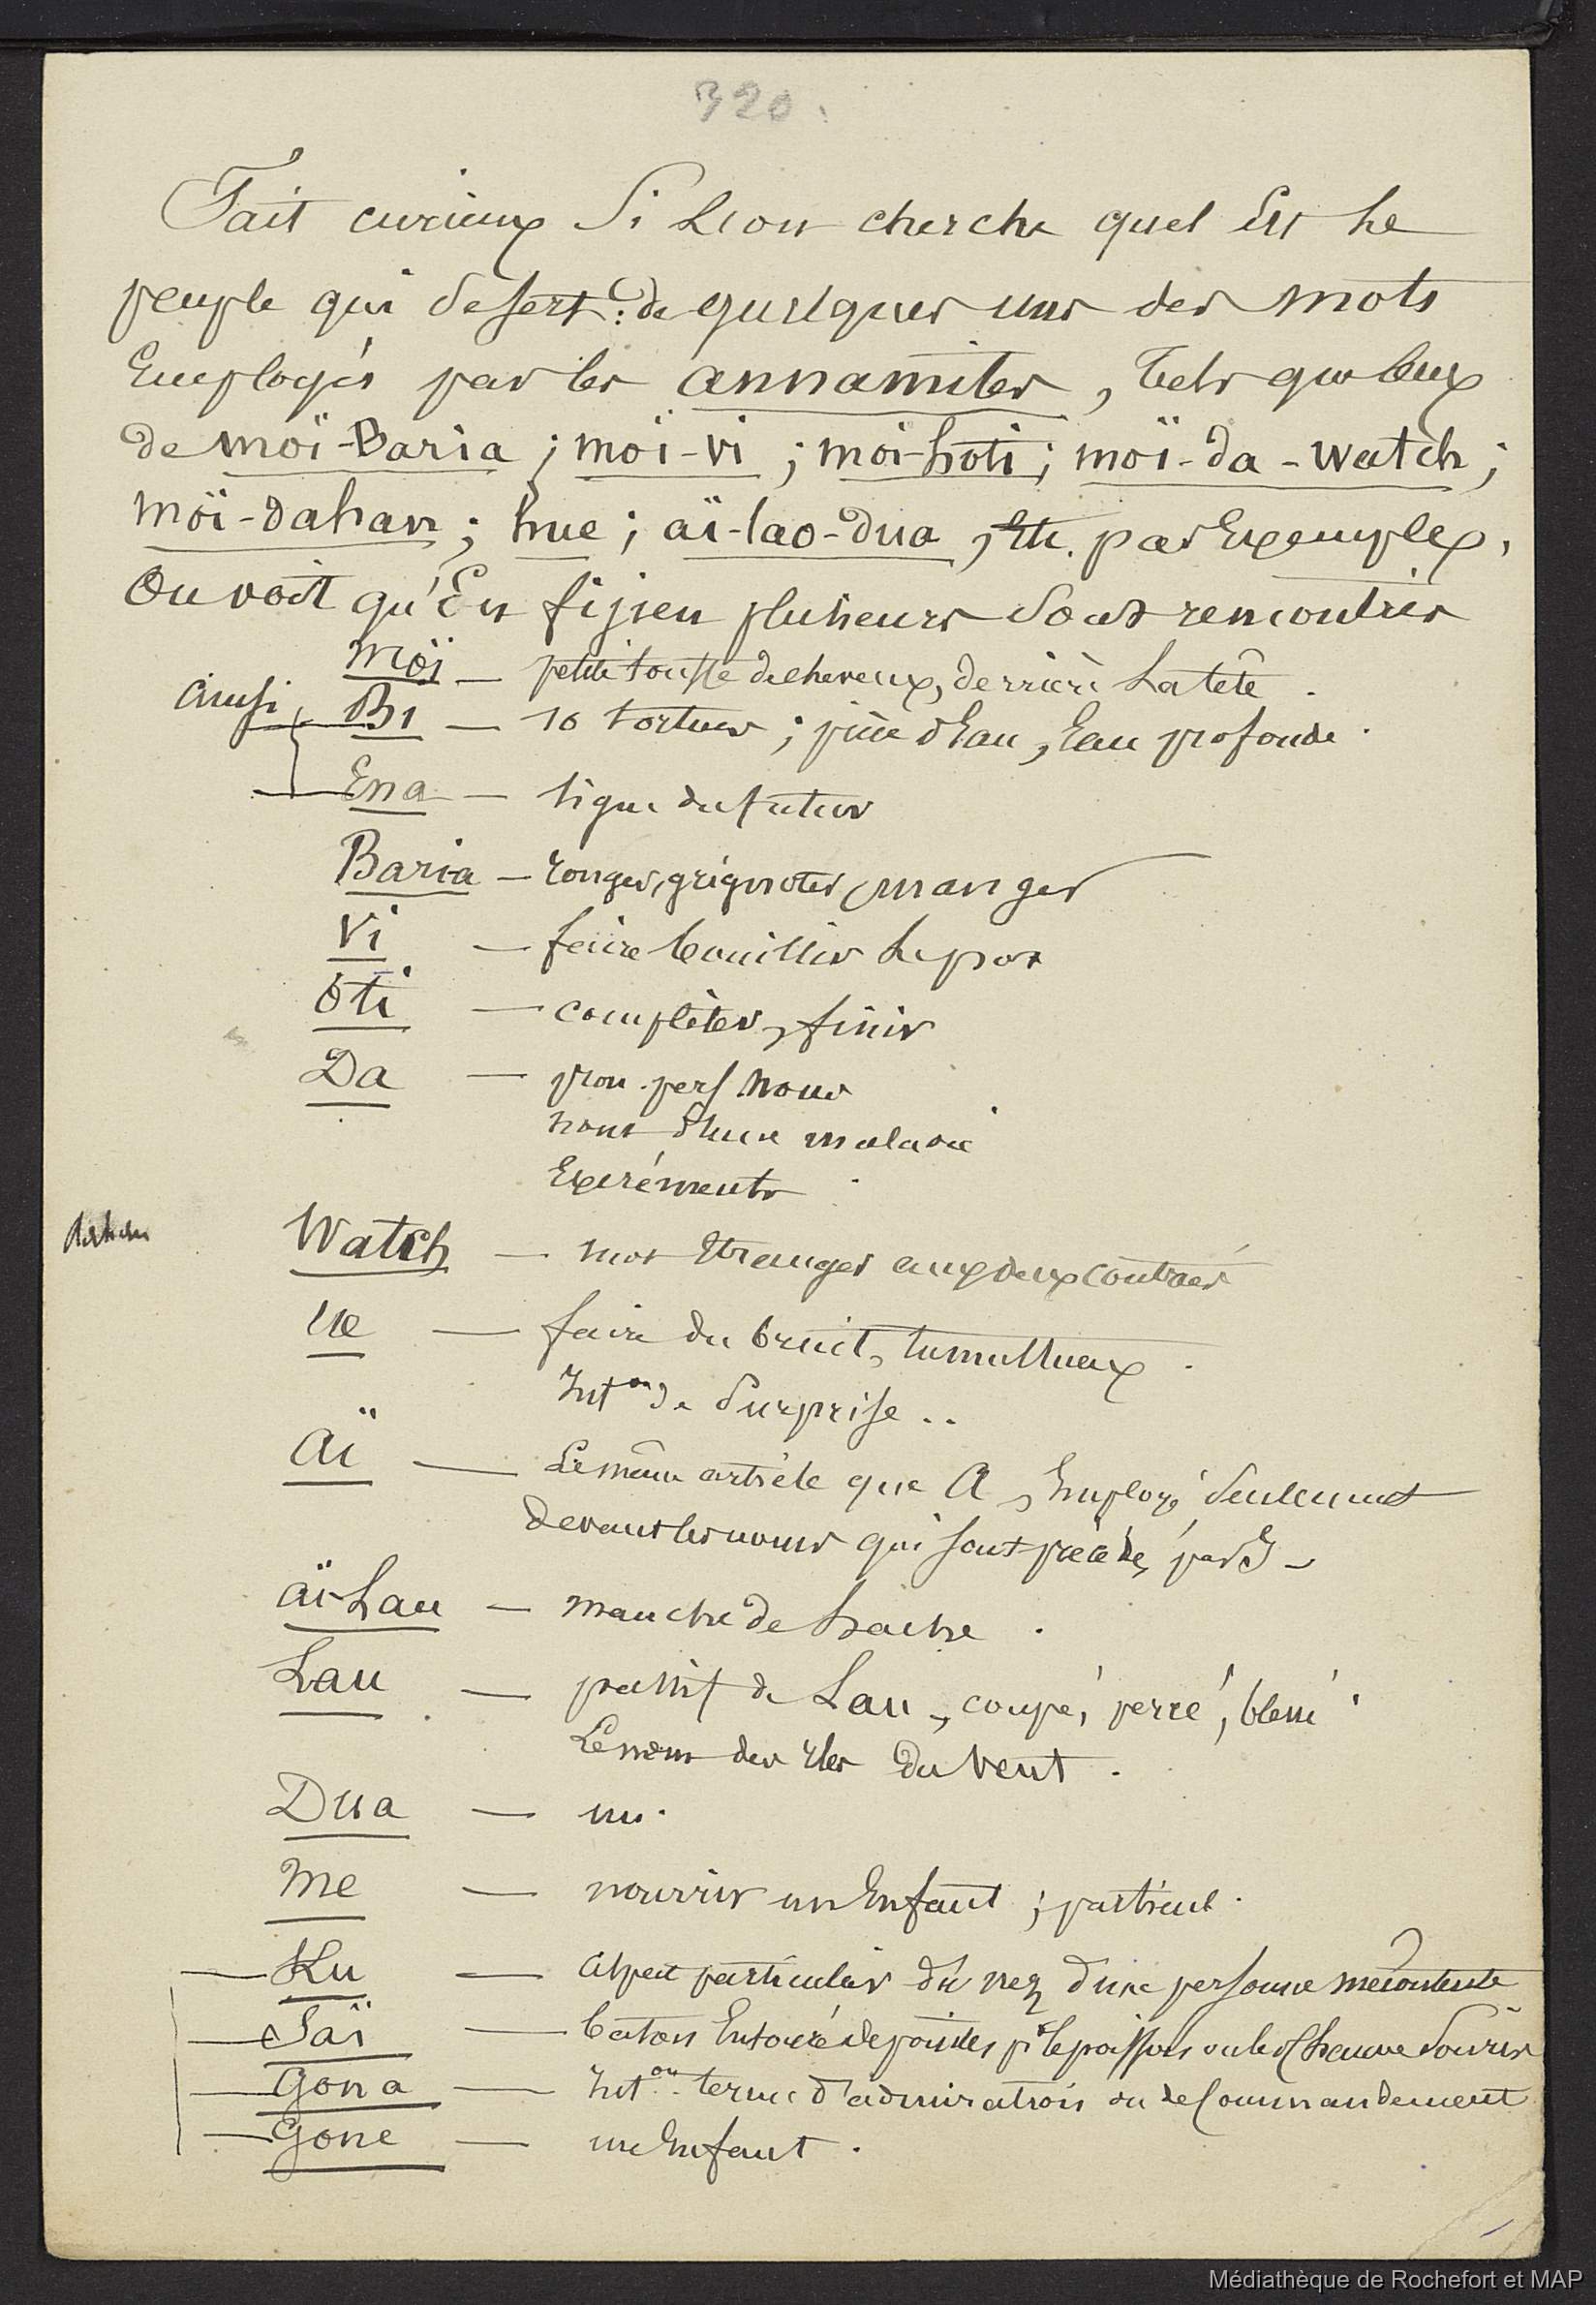 320.
Fait curieux Si L'on cherche quel Est Le
peuple qui se sert : de quelques uns des mots
Employés par les annamites, tels que ceux
de moï-Baria ; moï-vi ; moï-hoti ; moï-da-watch ;
moï-dahan ; hue ; aï-lao-dua, Etc. par Exemples,
On voit qu'En fijien plusieurs sont rencontrés
Moï — petite touffe de cheveux, derrière La tête.
ainsi Bi — 10 tortues ; pièce d'Eau, Eau profonde.
Ena — signe du futur
Baria — ronger, grignoter, manger
Vi — faire bouillir Le pot
oti — compléter, finir
Da — pron. pers nous
nom d'une maladie
Excréments
dahan Watch — mot Etranger aux deux contrées
ue — faire du bruit, tumultueux.
Int.on de Surprise..
aï — Le même article que A, Employé Seulement
devant les noms qui sont précédés par I
aï-Lau — manche de hache.
Lau — passif de Lau, coupé, percé, blessé
Le nom des Iles du Vent.
Dua — un.
Me — nourrir un Enfant ; particul.
Ku — aspect particulier du nez d'une personne mécontente
Saï — baton Entouré de pointes pr le poisson ou les Chauve Souris
Gona — Int.on terme d'admiration ou de Commandement
Gone — un Enfant.
Médiathèque de Rochefort et MAP